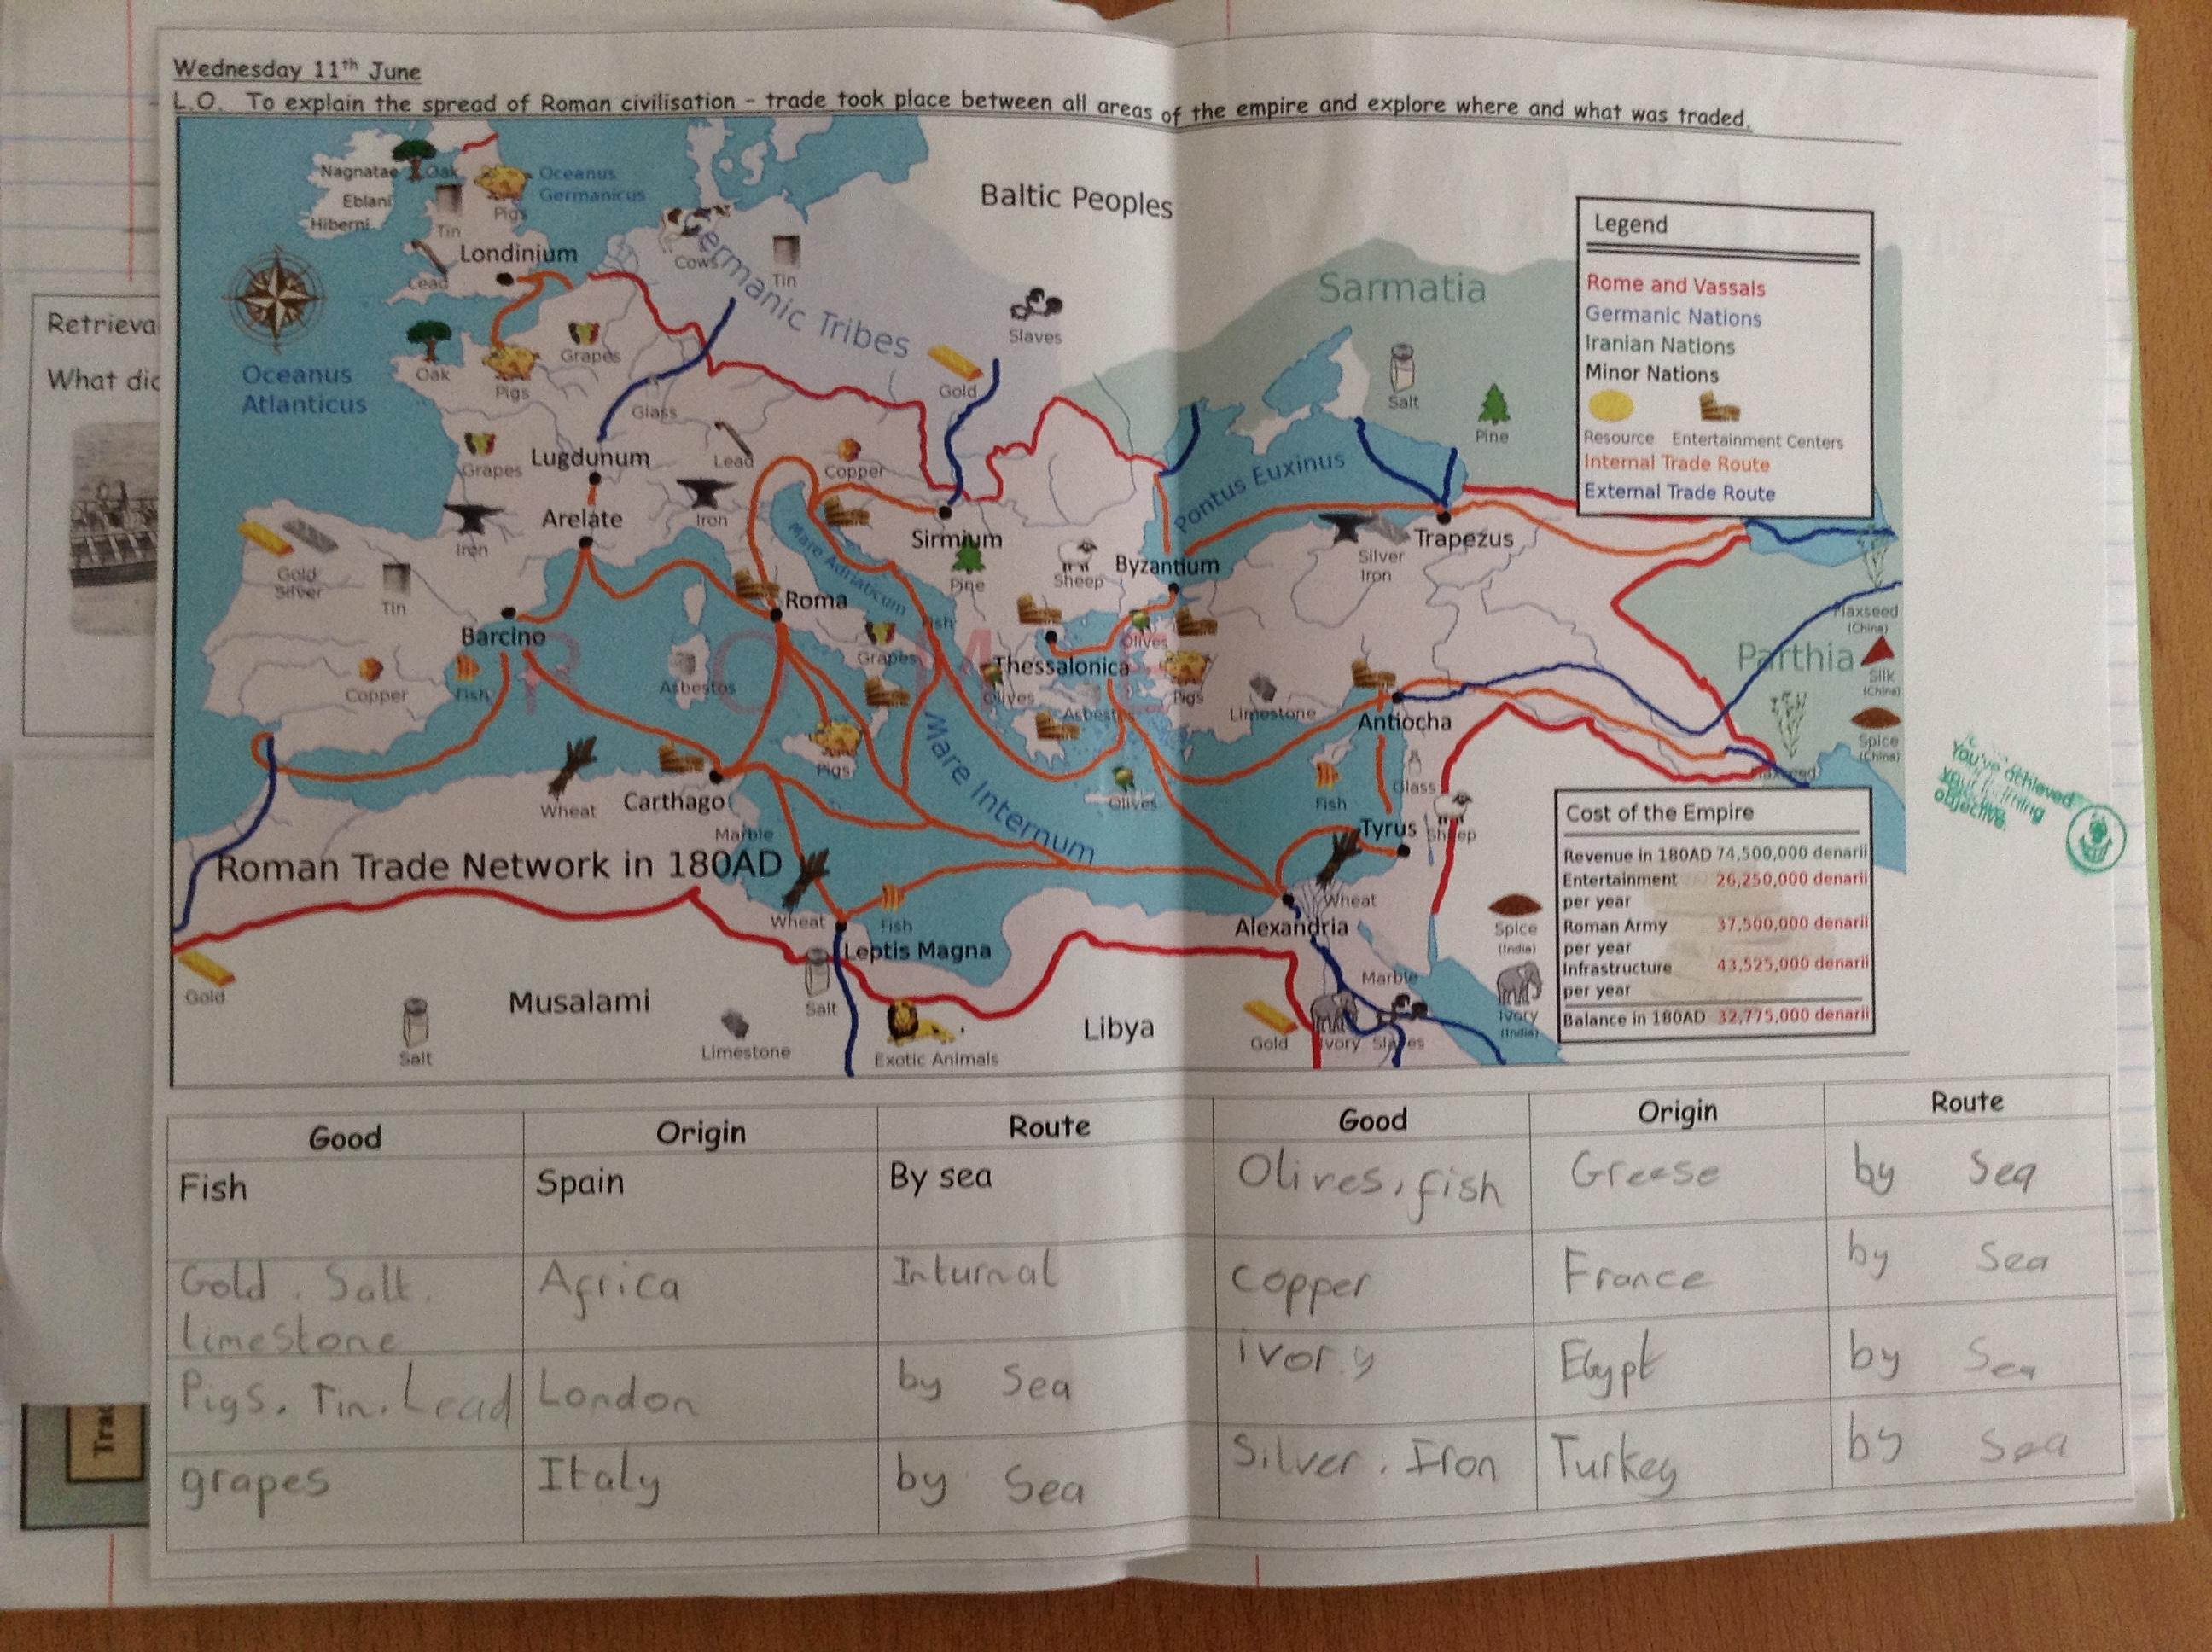 Wednesday 11th June
L.O. To explain the spread of Roman civilisation - trade took place between all areas of the empire and explore where and what was traded.
Retrieva
What dic
Trac
Nagnatae
Oak
Eblani
Hiberni
Tin
Pigs
Oceanus
Germanicus
Londinium
Lead
Cows
Germanic Tribes
Tin
Baltic Peoples
Slaves
Gold
Sarmatia
Salt
Pine
Oceanus
Atlanticus
Oak
Pigs
Grapes
Glass
Grapes
Lugdunum
Lead
Copper
Iron
Arelate
Iron
Sirmium
Pine
Mare Adriaticum
Sheep
Byzantium
Pontus Euxinus
Silver
Iron
Trapezus
Gold
Silver
Tin
Barcino
Roma
Fish
ROME
Grapes
Olives
Thessalonica
Olives
Copper
Fish
Asbestos
Asbestos
Pigs
Limestone
Antiocha
Parthia
Flaxseed
(China)
Silk
(China)
Spice
(China)
Flaxseed
Wheat
Carthago
Pigs
Mare Internum
Olives
Fish
Glass
Marble
Tyrus
Sheep
Roman Trade Network in 180AD
Wheat
Fish
Leptis Magna
Wheat
Alexandria
Spice
(India)
Marble
Gold
Salt
Musalami
Salt
Limestone
Exotic Animals
Libya
Gold
Ivory
Slaves
Ivory
(India)
Legend
Rome and Vassals
Germanic Nations
Iranian Nations
Minor Nations
Resource Entertainment Centers
Internal Trade Route
External Trade Route
Cost of the Empire
Revenue in 180AD 74,500,000 denarii
Entertainment 26,250,000 denarii
per year
Roman Army 37,500,000 denarii
per year
Infrastructure 43,525,000 denarii
per year
Balance in 180AD 32,775,000 denarii
You've achieved
your learning
objective.
Good Origin Route Good Origin Route
Fish Spain By sea Olives, fish Greese by Sea
Gold. Salt. Africa Inturnal Copper France by Sea
limestone
Pigs. Tin. Lead London by Sea ivory Egypt by Sea
grapes Italy by Sea Silver. Iron Turkey by Sea